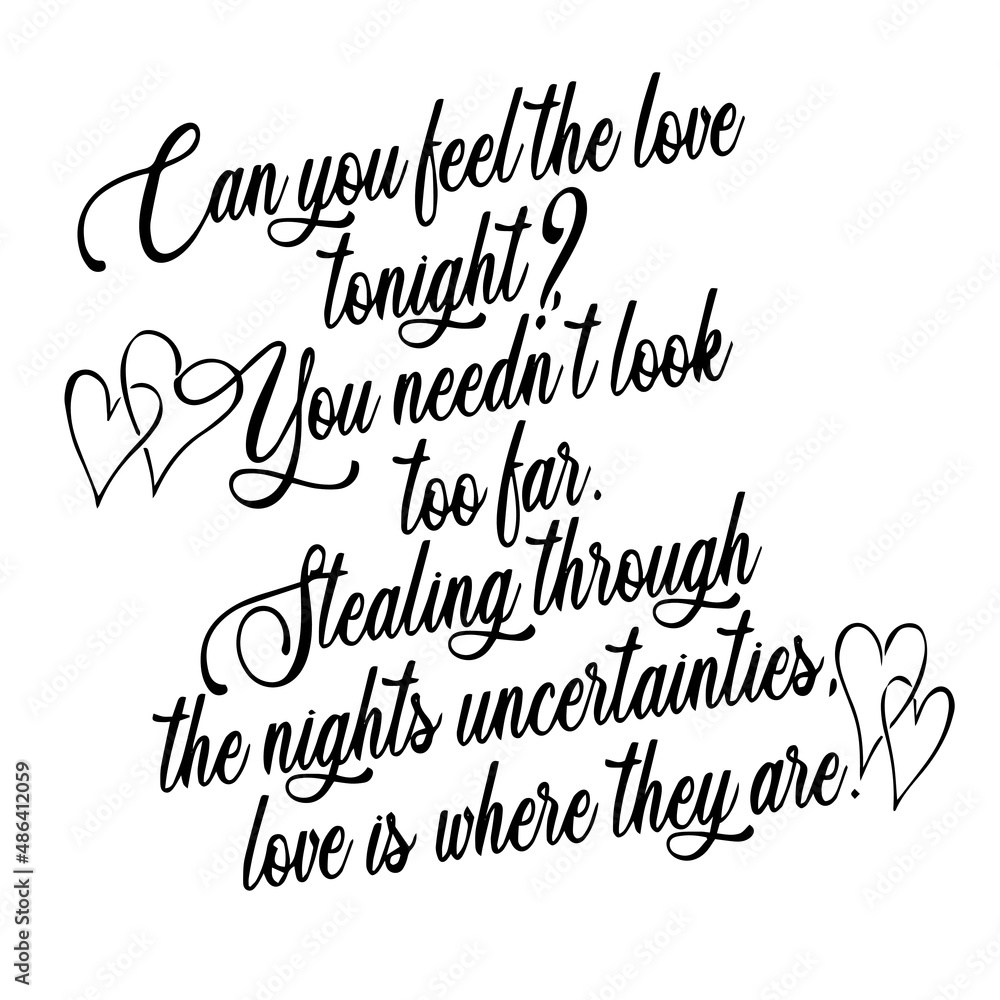 Can you feel the love
tonight?
You needn't look
too far.
Stealing through
the nights uncertainties,
love is where they are.
Adobe Stock | #486412059